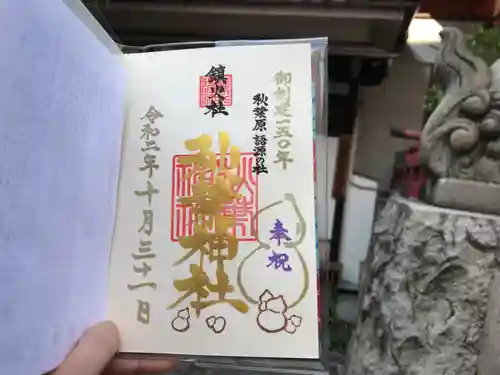 御創建一五〇年
秋葉原 語源の社
鎮火社
秋葉神社
奉祝
令和二年十月三十一日